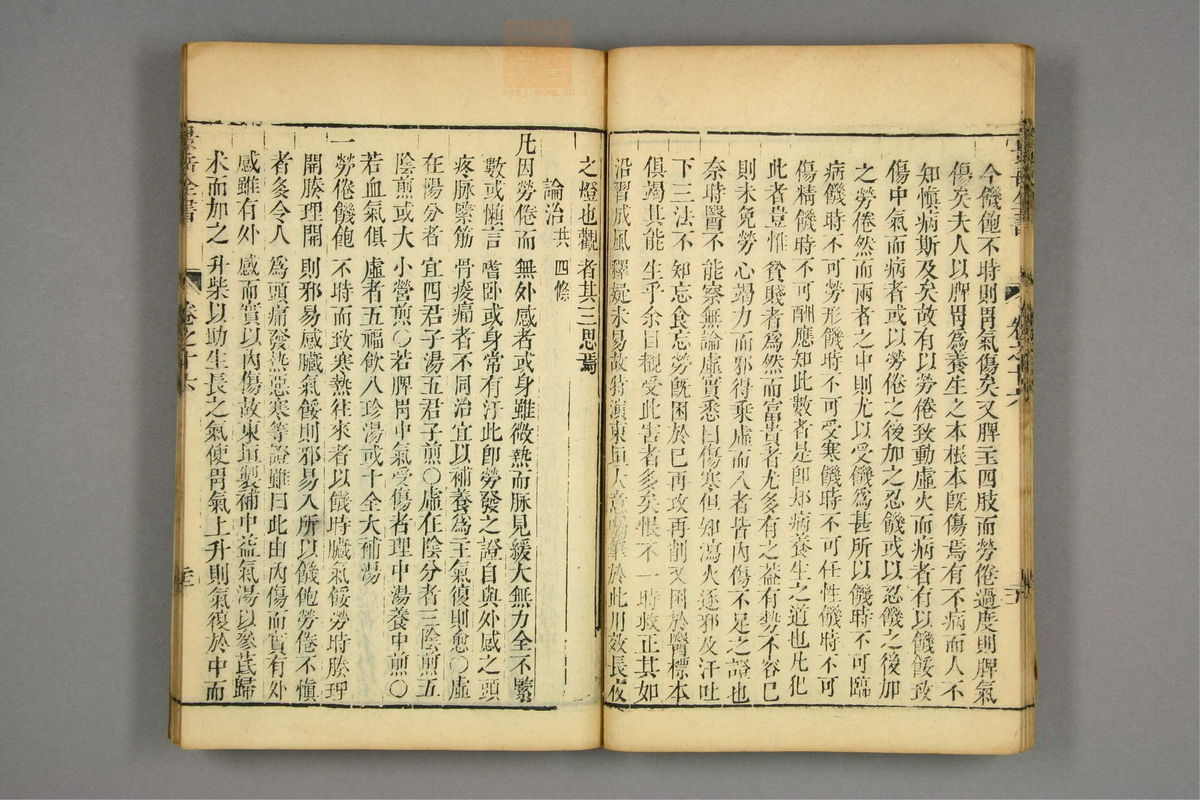 今饑飽不時則胃氣傷矣又脾主四肢而勞倦過度則脾氣
傷矣夫人以脾胃爲養生之本根本旣傷焉有不病而人不
知愼病斯及矣故有以勞倦致動虛火而病者有以饑餒致
傷中氣而病者或以勞倦之後加之忍饑或以忍饑之後加
之勞倦然而兩者之中則尤以受饑爲甚所以饑時不可臨
病饑時不可勞形饑時不可受寒饑時不可任性饑時不可
傷精饑時不可酬應知此數者是卽却病養生之道也凡犯
此者豈惟貧賤者爲然而富貴者尤多有之蓋有勢不容已
則未免勞心竭力而邪得乘虛而入者皆內傷不足之證也
奈時醫不能察無論虛實悉曰傷寒但知瀉火逐邪及汗吐
下三法不知忘食忘勞旣困於已再攻再削又困於醫標本
俱竭其能生乎余目觀受此害者多矣恨不一時救正其如
沿習成風釋疑未易故特滇東垣大意
筆於此用效長夜
之燈也觀者其三思焉
論治共四條
凡因勞倦而無外感者或身雖微熱而脉見緩大無力全不緊
數或懶言嗜卧或身常有汗此卽勞發之證自與外感之頭
疼脉緊筋骨痠痛者不同治宜以補養爲主氣復則愈○虛
在陽分者宜四君子湯五君子煎○虛在陰分者三陰煎五
陰煎或大小營煎○若脾胃中氣受傷者理中湯養中煎○
若血氣俱虛者五福飮八珍湯或十全大補湯
一勞倦饑飽不時而致寒熱往來者以饑時臟氣餒勞時腠理
開腠理開則邪易感臟氣餒則邪易入所以饑飽勞倦不愼
者灸令人爲頭痛發熱惡寒等證雖曰此由內傷而實有外
感雖有外感而實以內傷故東垣製補中益氣湯以參芪歸
朮而加之升柴以助生長之氣使胃氣上升則氣復於中而
卷之十六
卷之十六